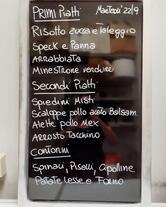 Primi Piatti Martedi' 22/9
Risotto zucca e taleggio
Speck e Panna
Arrabbiata
Minestrone verdure
Secondi Piatti
Spiedini Misti
Scaloppe pollo aceto Balsam
Alette pollo Mex
Arrosto Tacchino
Contorni
Spinaci, Piselli, Cipolline
Patate Lesse e Forno